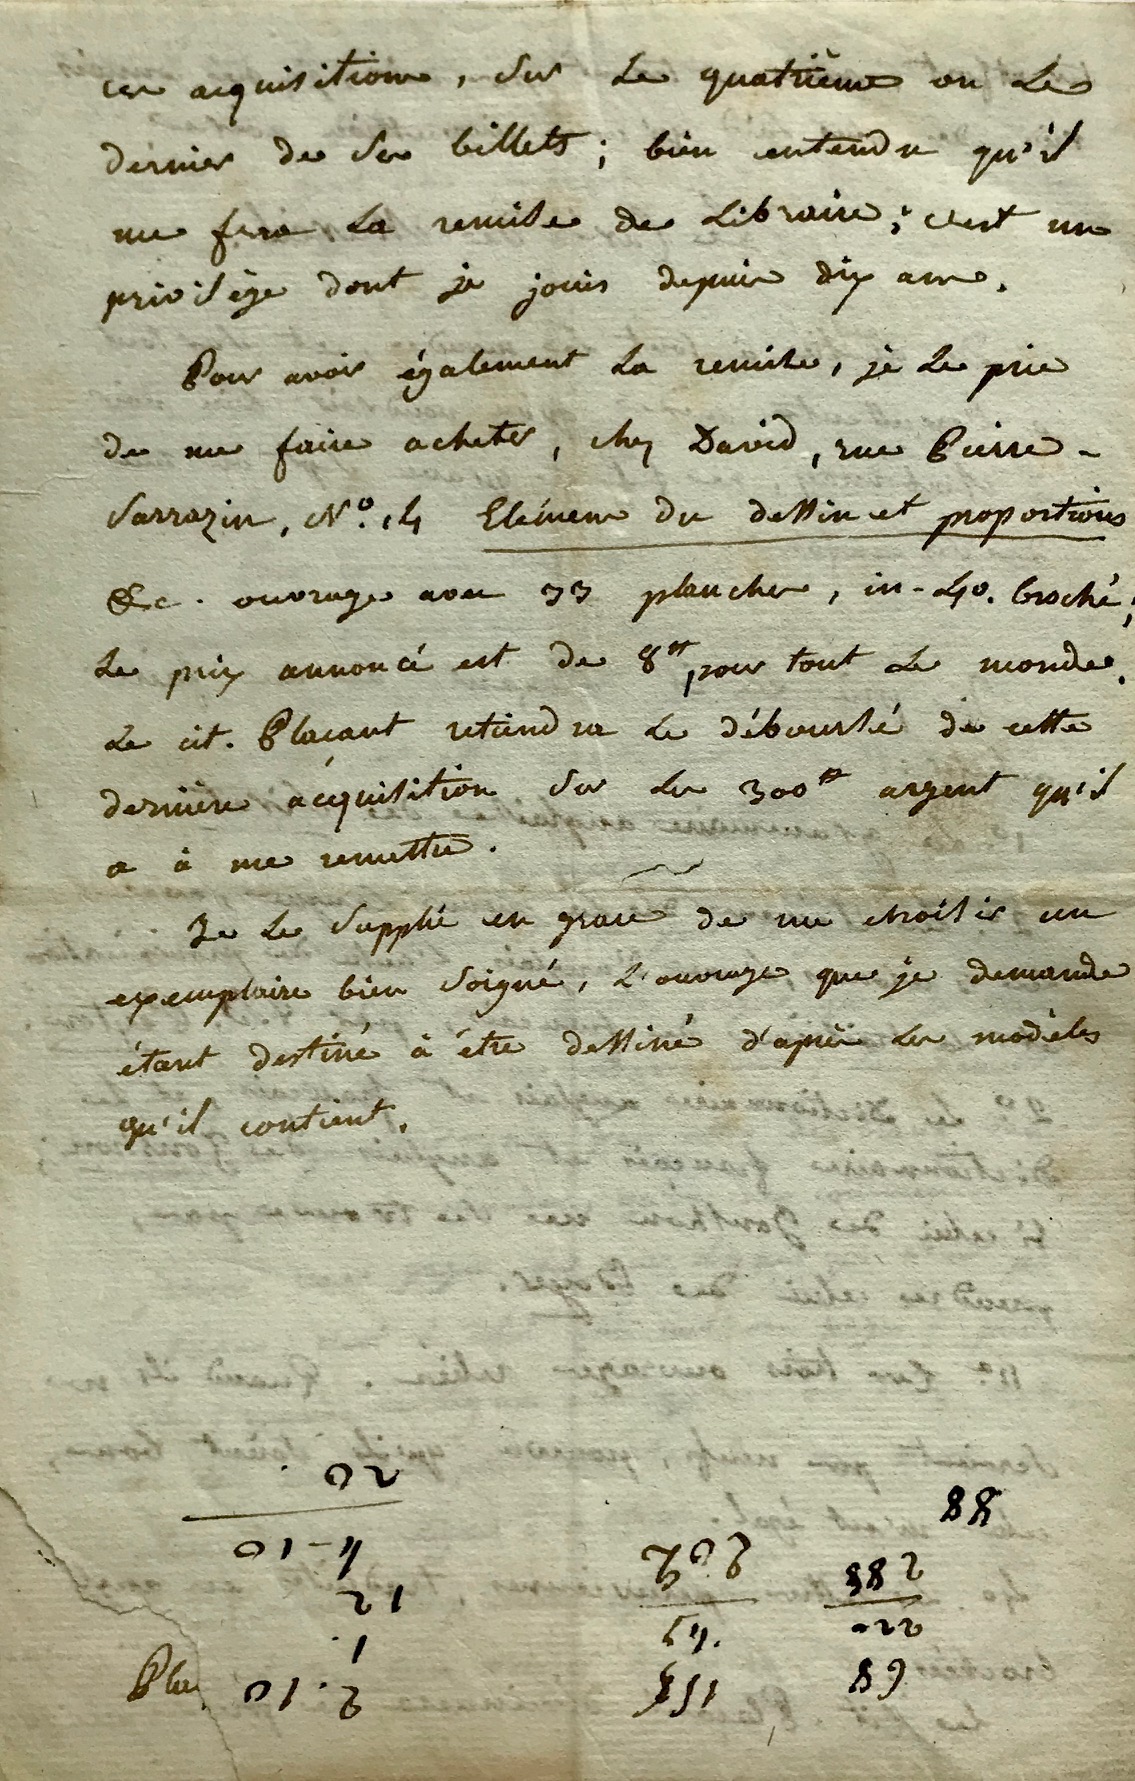 ces acquisitions, sur le quatrième ou le
dernier de ses billets; bien entendu qu'il
me fera la remise de libraire; c'est un
privilège dont je jouis depuis dix ans.
Pour avoir également la remise, je le prie
de me faire acheter, chez David, rue Pierre-
Sarrazin, N.º 14 Elémens du dessin et proportions
&c. ouvrage avec 33 planches, in-4º. broché;
le prix annoncé est de 8tt pour tout le monde.
Le cit. Plaçant retiendra le déboursé de cette
dernière acquisition sur les 300tt argent qu'il
a à me remettre.
Je le supplie en grace de me choisir un
exemplaire bien soigné, l'ouvrage que je demande
étant destiné à être dessiné d'après les modèles
qu'il contient.
2.10
1.
12
4-10
20
68
220
288
88